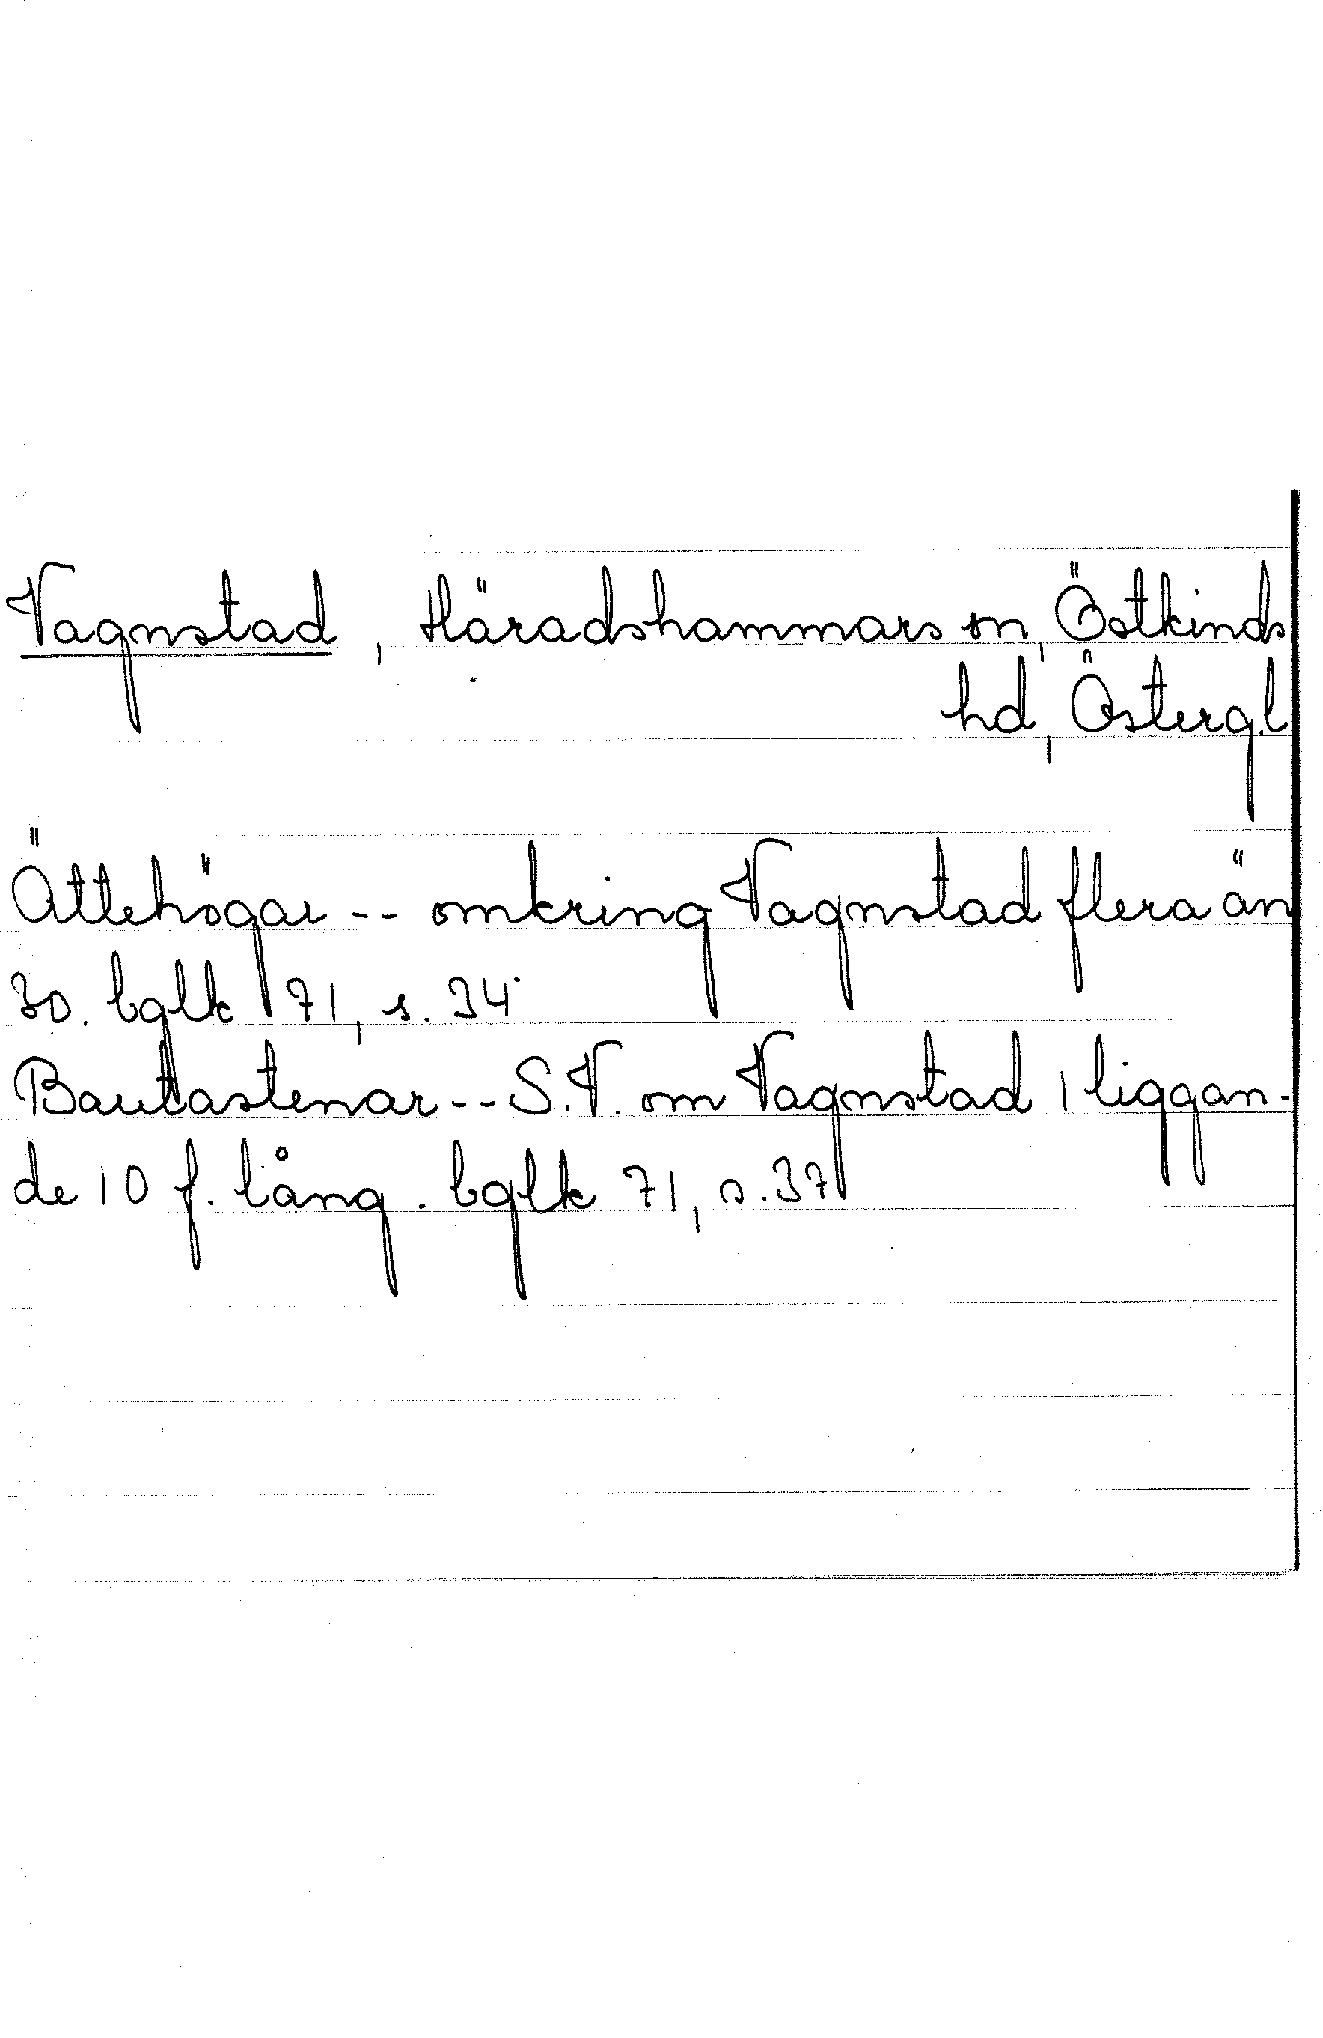 Vagnstad, Häradshammars sn, Östkinds
hd, Östergl
Ättehögar -- omkring Vagnstad flera än
30. bglk 71, s. 34
Bautastenar -- S.V. om Vagnstad 1 liggan-
de 10 f. lång. bglk 71, s. 37